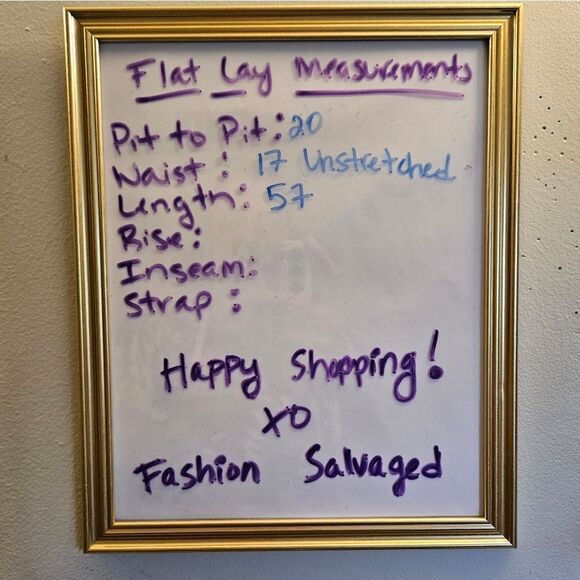 Flat Lay Measurements
Pit to Pit: 20
Waist: 17 Unstretched
Length: 57
Rise:
Inseam:
Strap:
Happy Shopping!
XO
Fashion Salvaged